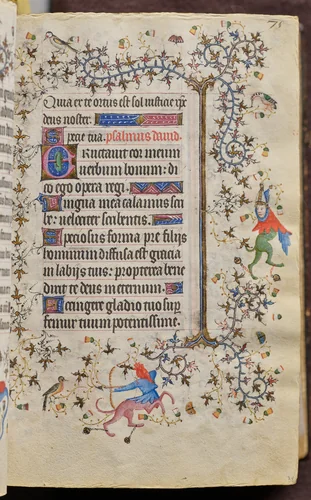 71
Quia ex te ortus est sol iusticie xpc
deus noster.
Specie tua. psalmus david.
Eructauit cor meum
uerbum bonum: di
co ego opera regi.
Lingua mea calamus scri
be: uelociter scribentis.
Speciosus forma pre filijs
hominum diffusa est gracia
in labijs tuis: propterea bene
dixit te deus in eternum.
Accingere gladio tuo sup
femur tuum potentissime.